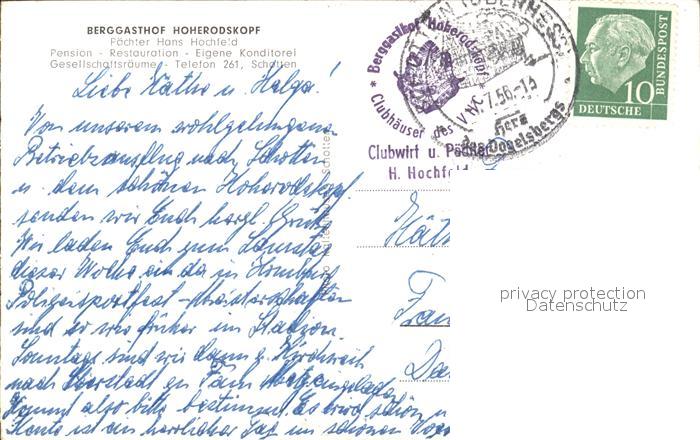 BERGGASTHOF HOHERODSKOPF
Pächter Hans Hochfeld
Pension - Restauration - Eigene Konditorei
Gesellschaftsräume - Telefon 261, Schotten
* Berggasthof Hoherodskopf *
Clubhäuser des VHC
Clubwirt u. Pächter
H. Hochfeld
7.56.-13
Herz
des Vogelsbergs
10
DEUTSCHE
BUNDESPOST
Liebe Käthe u. Helga!
Von unserem wohlgelungenen
Betriebsausflug nach Schotten
u. dem schönen Hoherodskopf
senden wir Euch herzl. Grüße
Wir laden Euch zum Samstag
dieser Woche ein da in
Polizeisportfest - Meisterschaften
sind so wie früher im Stadion.
Sonntags sind wir dann z. Kirchweih
nach Eberstadt zu Fam. eingeladen
Kommt also bitte bestimmt. Es wird schön u
Heute ist ein herrlicher Tag im schönen
Käth
Fran
Da
privacy protection
Datenschutz